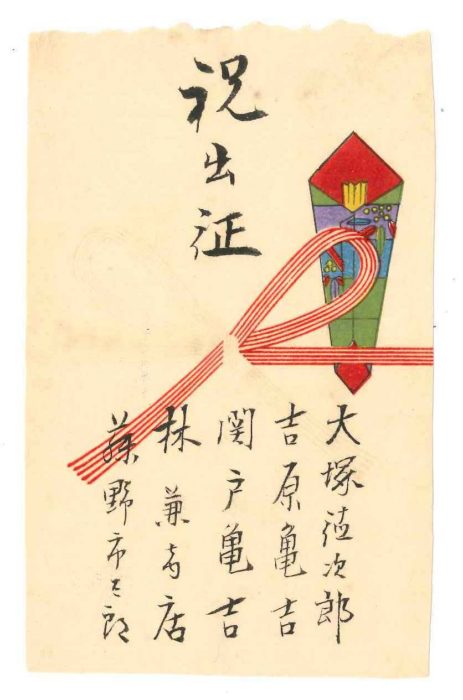 祝出征
大塚徳次郎
吉原亀吉
関戸亀吉
林兼商店
藤野市三郎